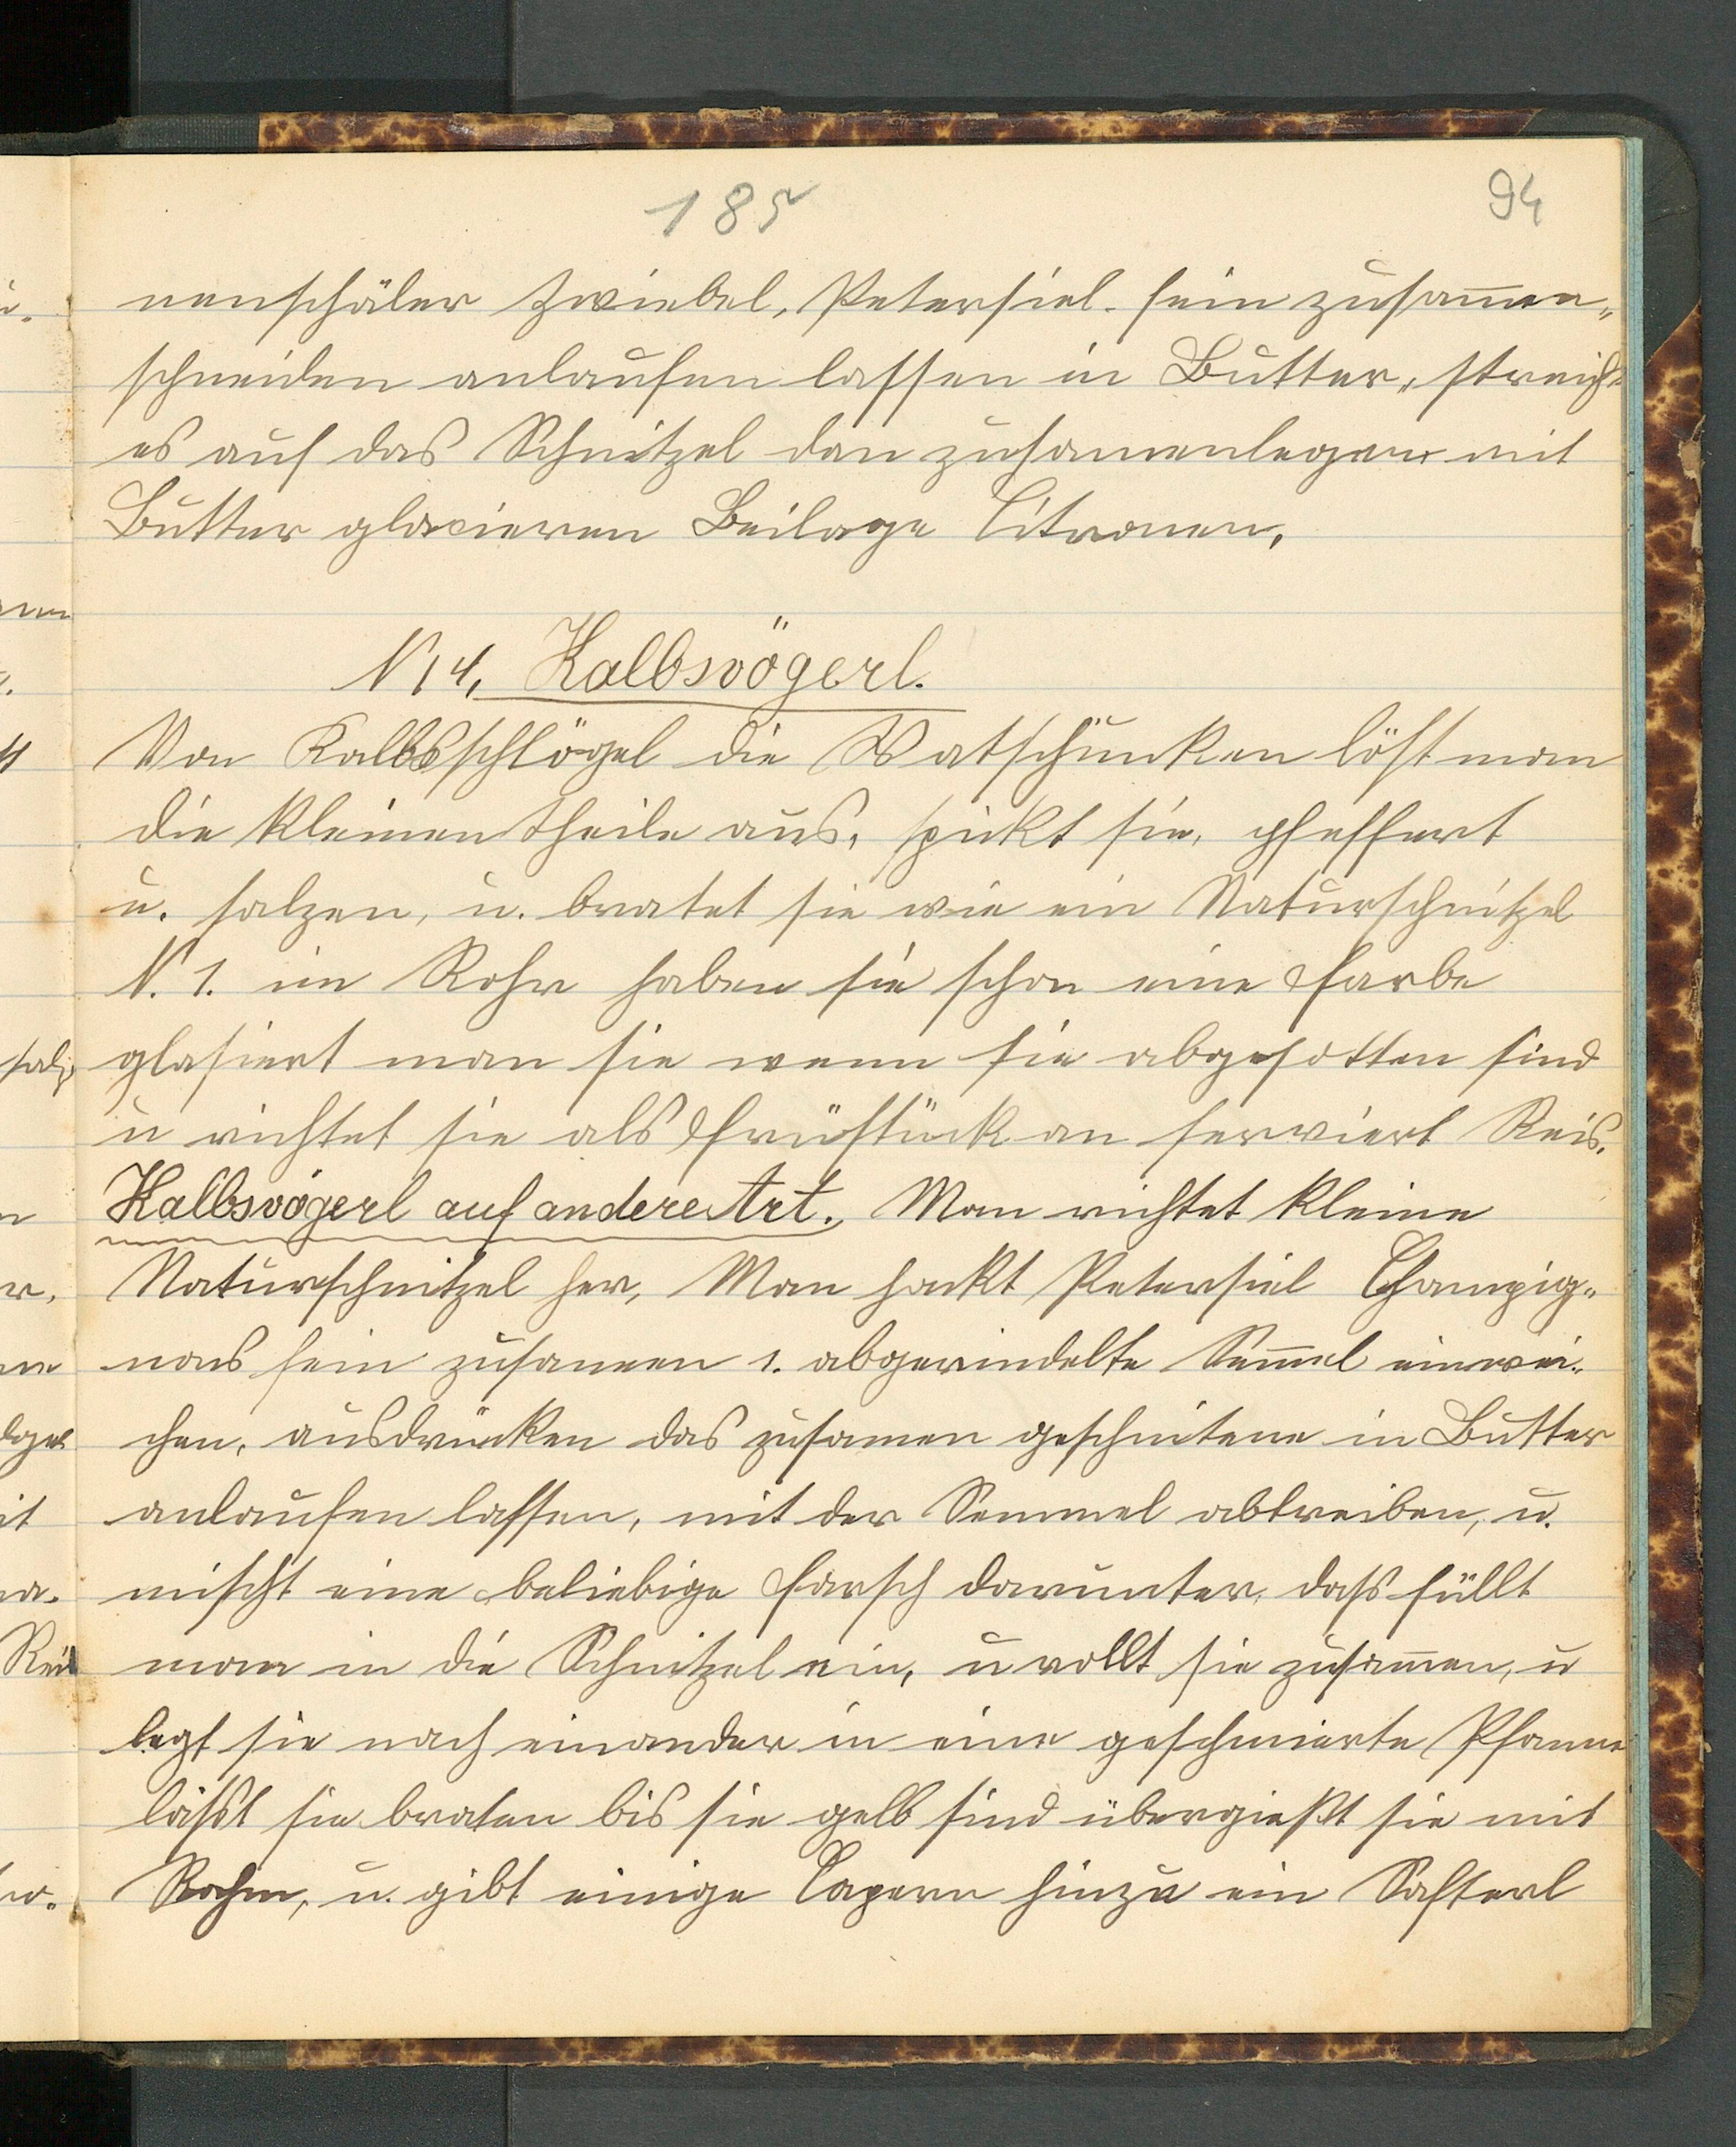 185
94
nenschäler Zwiebel, Petersiel fein zusam̄en„
schneiden anlaufen lassen in Butter, streich
es auf das Schnitzel dan zusammenlegen mit
Butter glacieren Beilage Citronen.
N 14, Kalbsvögerl.
Von Kalbsschlögel die Watschunken löst man
die kleinen Theile aus, spickt sie, pfeffert
u. salzen, u. bratet sie wie ein Naturschnitzel
N. 1. im Rohr haben sie schon eine Farbe
glasiert man sie wenn sie abgesotten sind
u richtet sie als Früstück an serviert Reis.
Kalbsvögerl auf andere Art. Man richtet kleine
Naturschnitzel her, Man hackt Petersiel Champig„
nons fein zusammen 1. abgerindelte Sem̄el einwei„
chen, ausdrücken das zusamen geschnitene in Butter
anlaufen lassen, mit der Semmel abtreiben, u.
mischt eine beliebige Farsch darunter, dass füllt
man in die Schnitzel ein, u rollt sie zusam̄en, u
legt sie nach einander in eine geschmierte Pfanne
lässt sie braten bis sie gelb sind übergießt sie mit
Rahm, u. gibt einige Capern hinzu ein Safterl